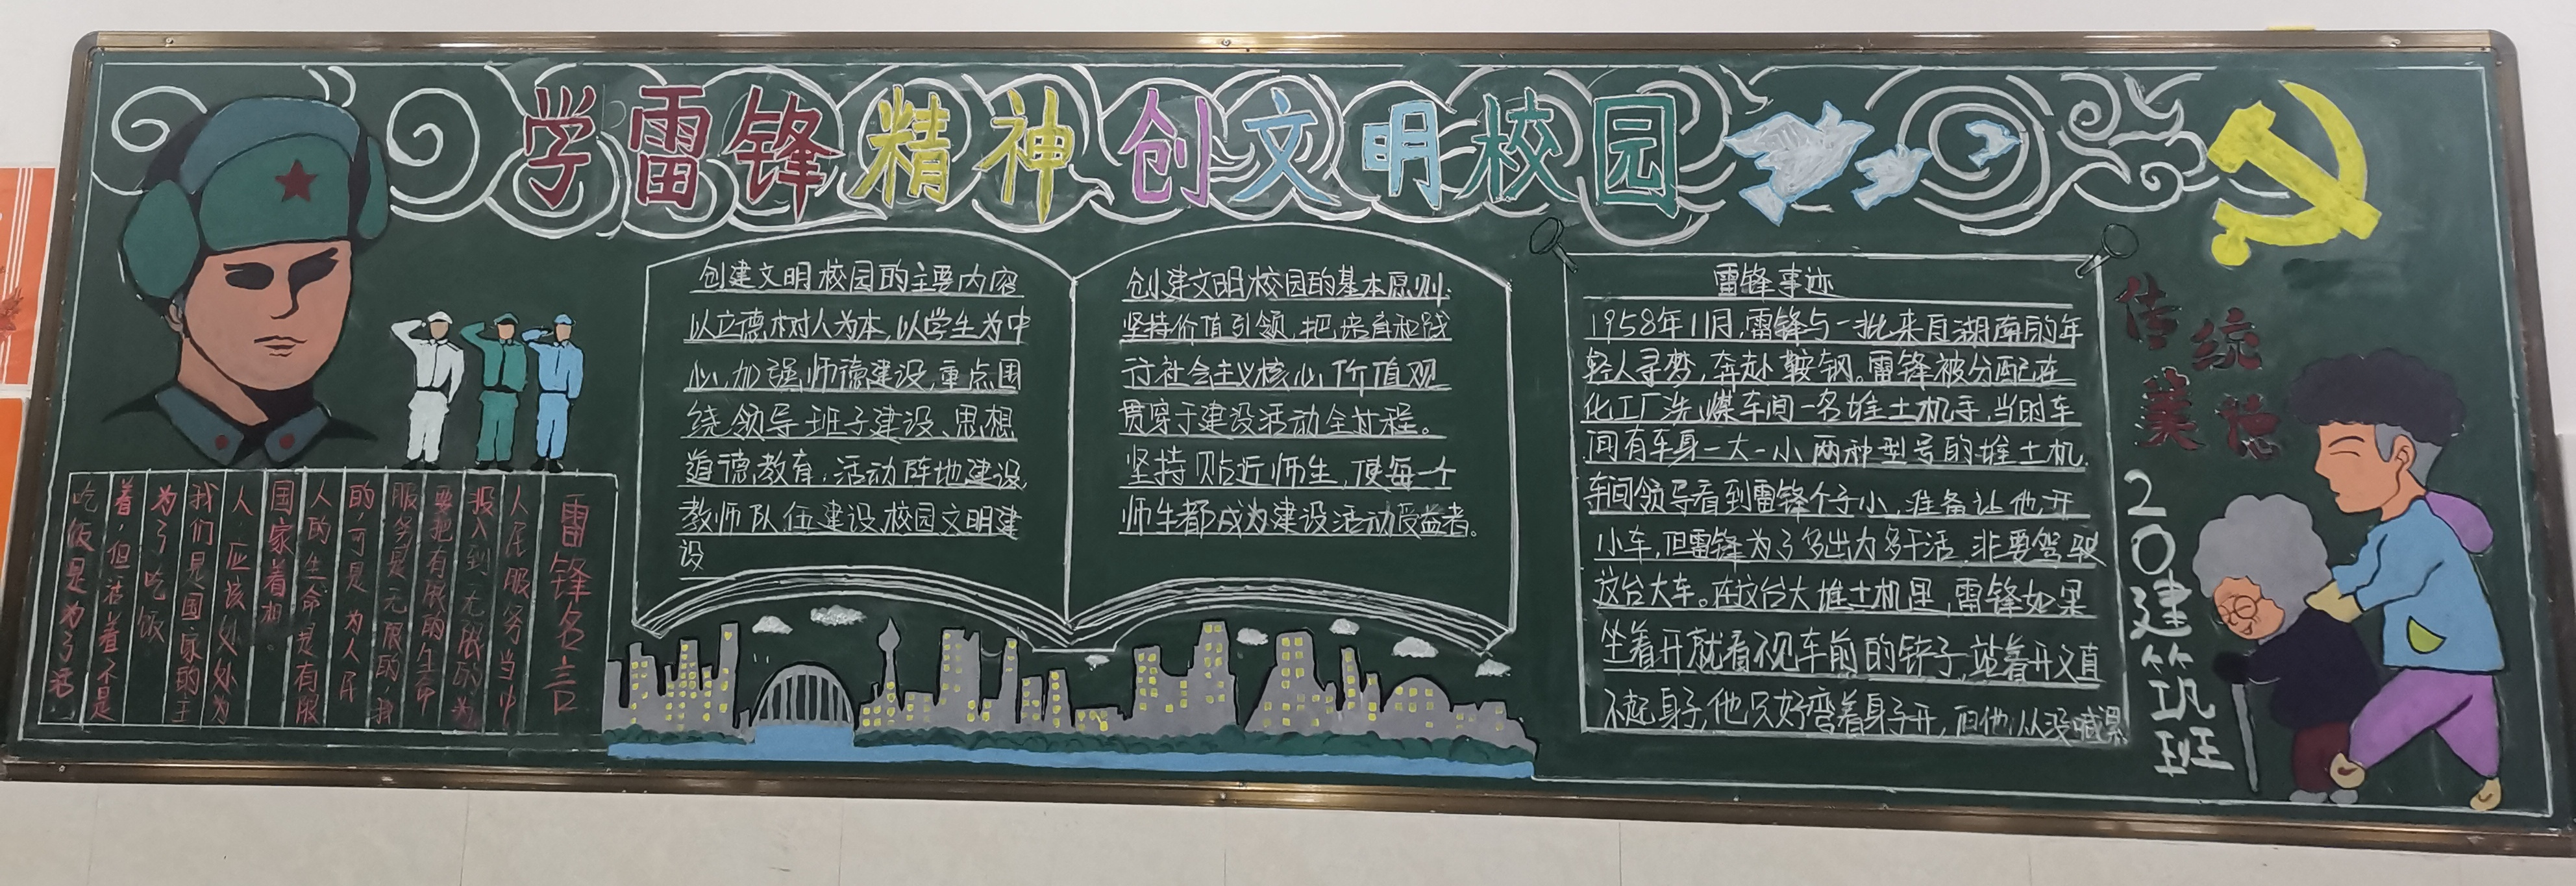 学雷锋精神创文明校园
雷锋名言
吃饭是为了活
着,但活着不是
为了吃饭
我们是国家的主
人,应该处处为
国家着想。
人的生命是有服
的,可是为人民
服务是无限的,我
要把有限的生命
投入到无限的为
人民服务当中
创建文明校园的主要内容
以立德树人为本,以学生为中
心,加强师德建设,重点围
绕领导班子建设、思想
道德教育,活动阵地建设,
教师队伍建设校园文明建
设
创建文明校园的基本原则:
坚持价值引领,把培育和践
行社会主义核心价值观
贯穿于建设活动全过程。
坚持贴近师生,使每一个
师生都成为建设活动受益者。
雷锋事迹
1958年11月,雷锋与一批来自湖南的年
轻人寻梦,奔赴鞍钢。雷锋被分配在
化工厂洗煤车间一名堆土机手,当时车
间有车身一大一小两种型号的堆土机.
车间领导看到雷锋个子小,准备让他开
小车,但雷锋为了多出力多干活,非要驾驶
这台大车。在这台大堆土机里,雷锋如果
坐着开就看不见车前的铲子,站着开又直
不起身子,他只好弯着身子开,但他从没喊累
传统
美德
20建筑班